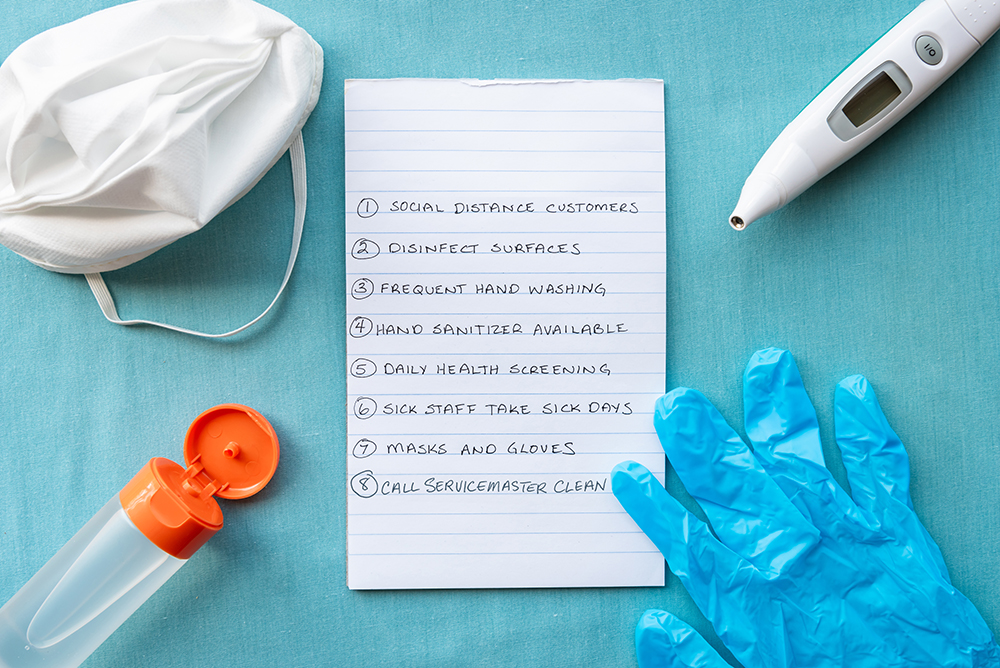 1 SOCIAL DISTANCE CUSTOMERS
2 DISINFECT SURFACES
3 FREQUENT HAND WASHING
4 HAND SANITIZER AVAILABLE
5 DAILY HEALTH SCREENING
6 SICK STAFF TAKE SICK DAYS
7 MASKS AND GLOVES
8 CALL SERVICEMASTER CLEAN
I/O